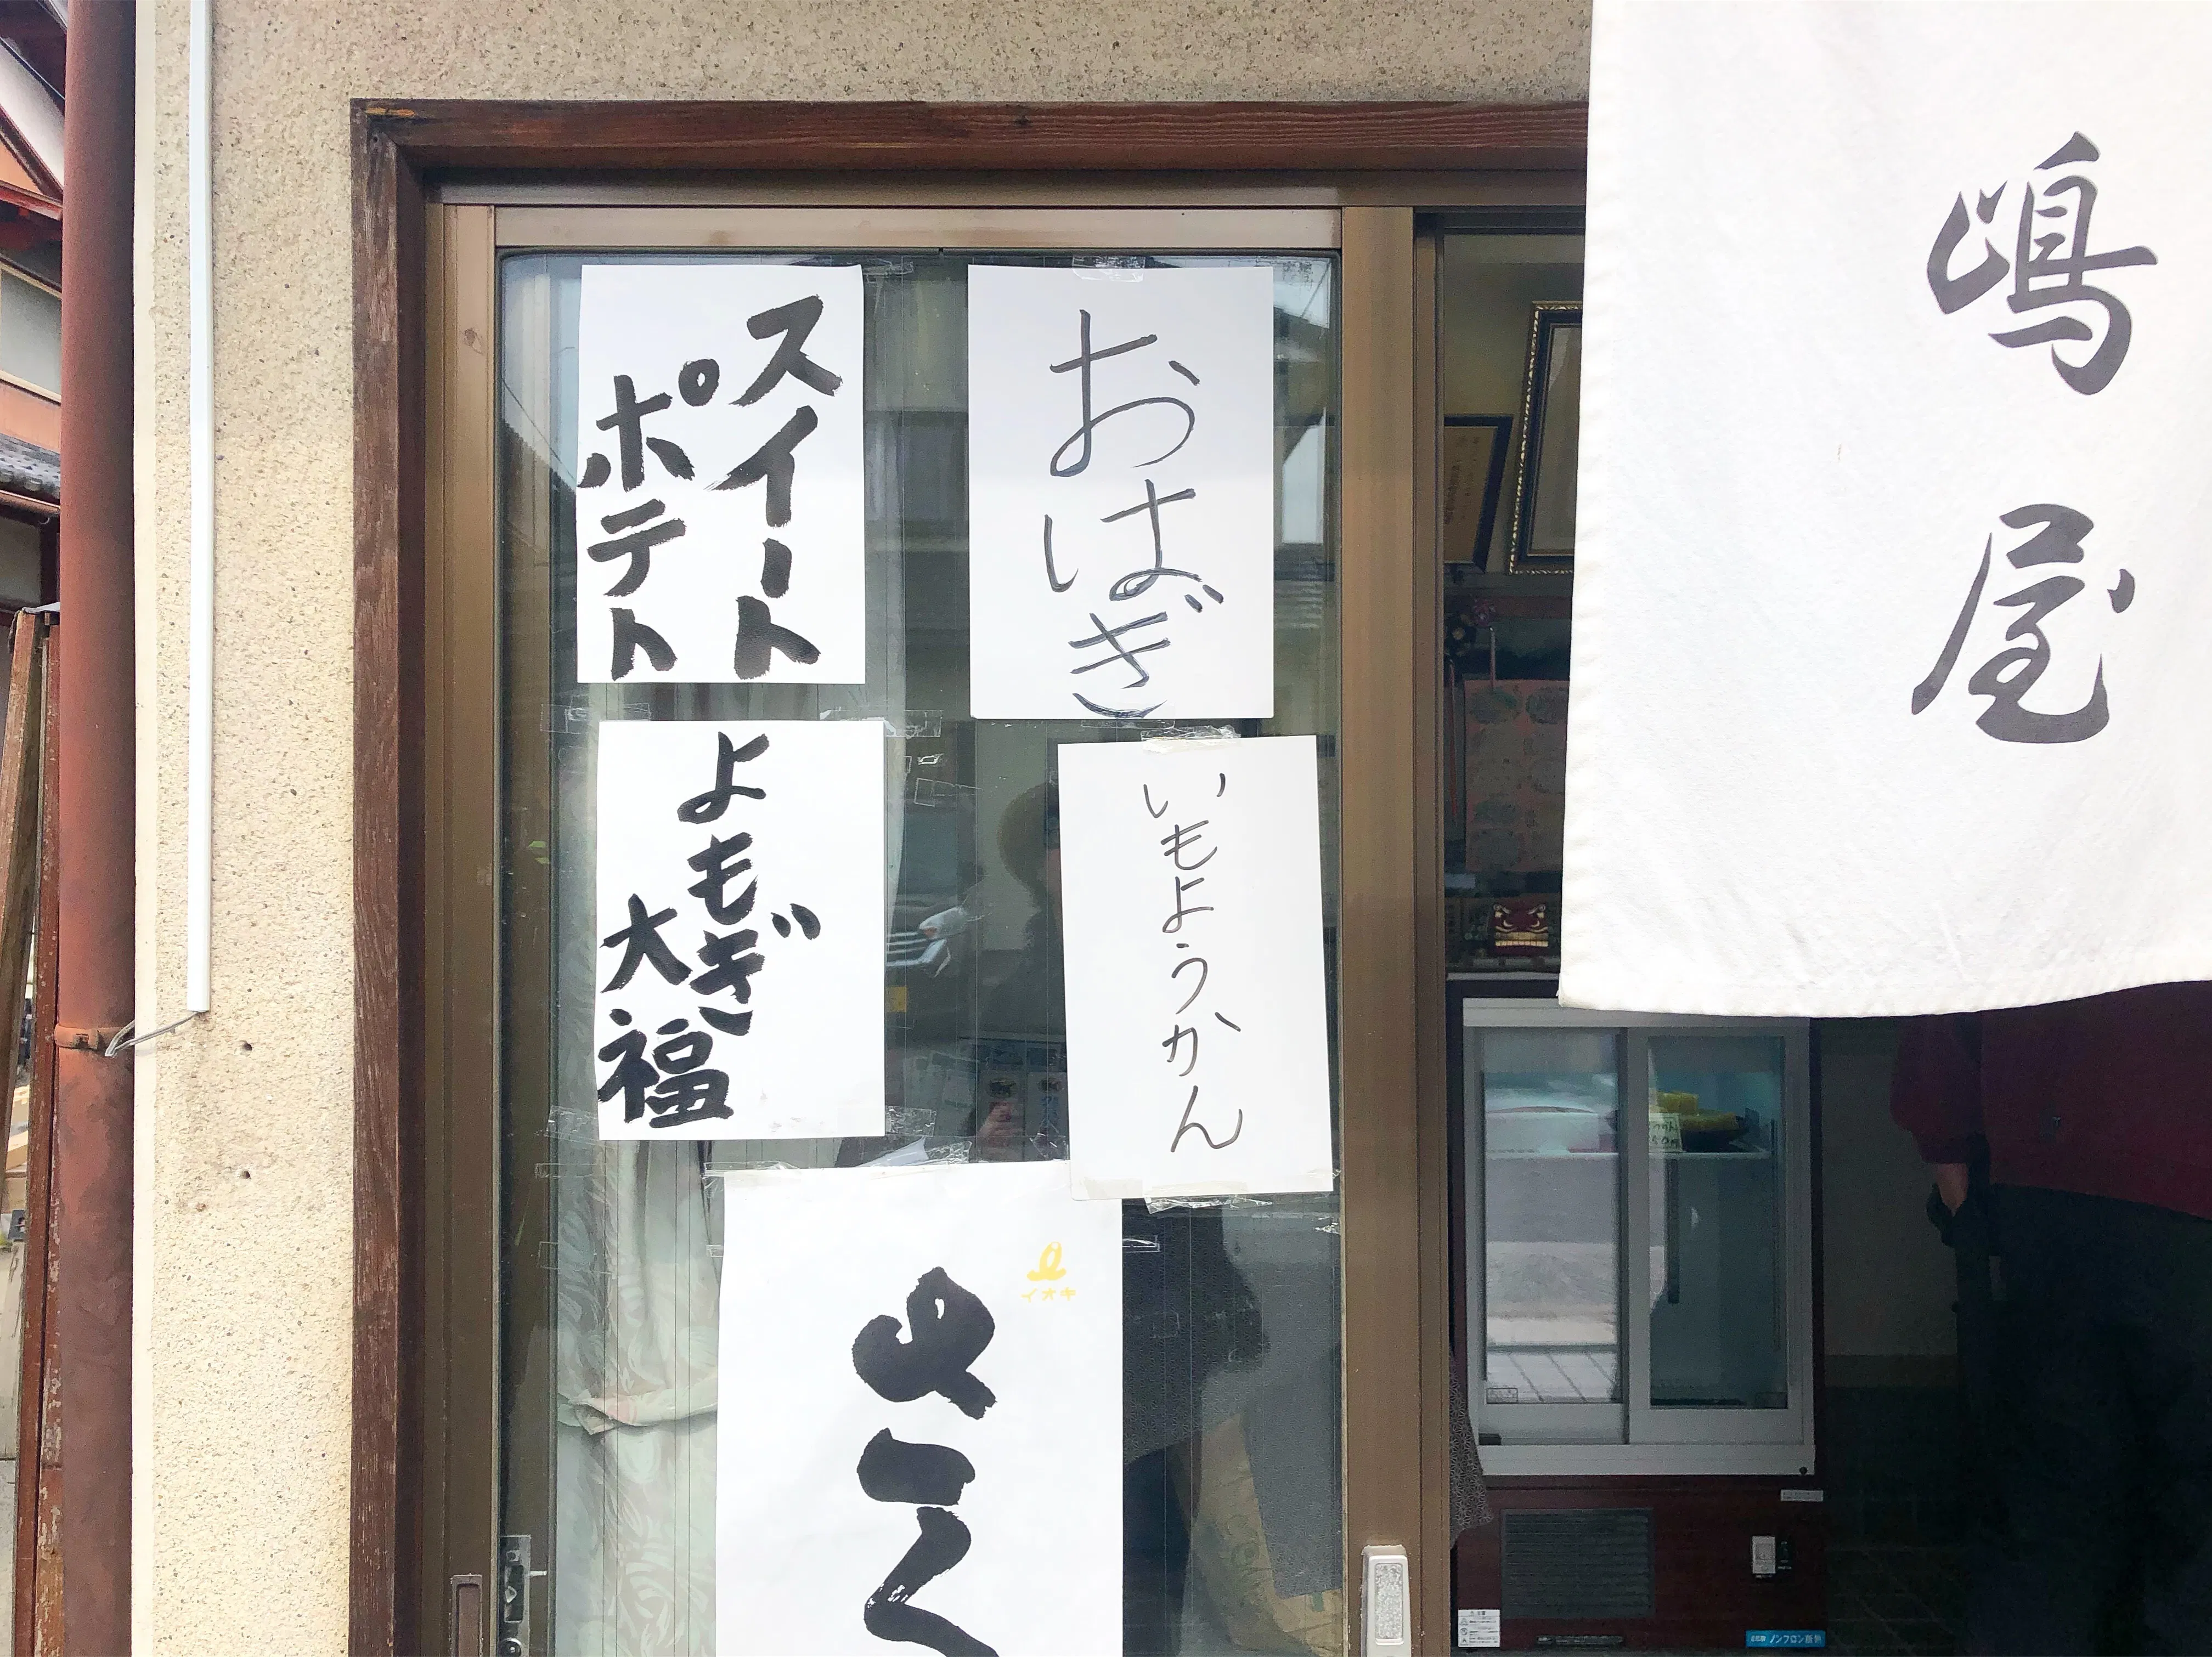 嶋屋
おはぎ
スイート
ポテト
いもようかん
よもぎ
大福
イオキ
ノンフロン断熱